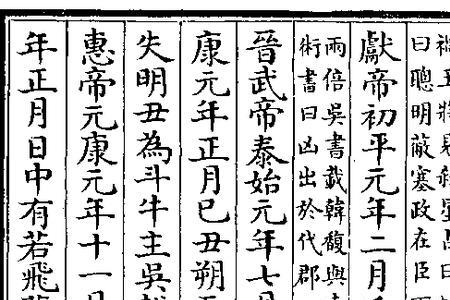 曰聰明蔽塞政在臣
獻帝初平元年二月
兩倍吳書載韓馥與
術書曰凶出於代郡
晉武帝泰始元年七月
康元年正月己丑朔
失明丑為斗牛主吳
惠帝元康元年十一月
年正月日中有若飛